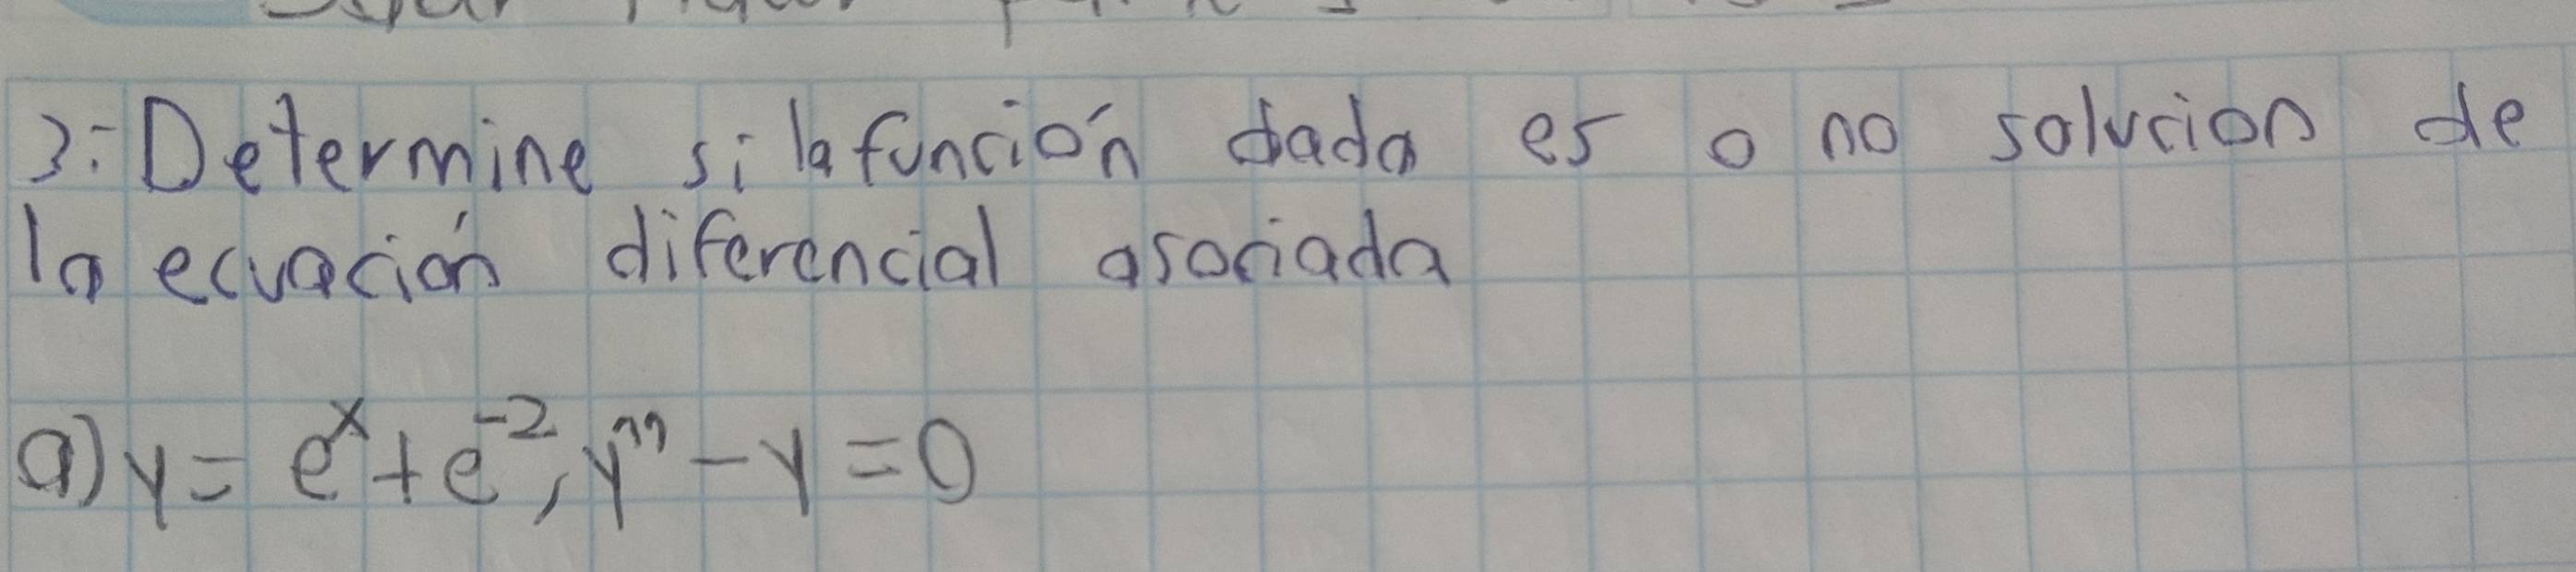 3: Determine si la función dada es o no solucion de
la ecuación diferencial asociada
a) y = e^x + e^-2, y'' - y = 0